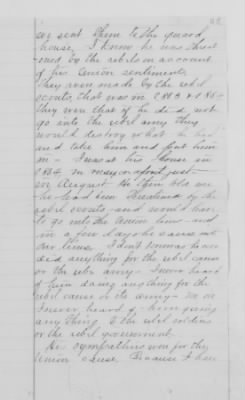 we sent them to the guard
house, I know he was threat
ened by the rebels on account
of his Union sentiments,
they were made by the rebel
scouts, that was in 1863 & 1864
they were that if he did not
go into the rebel army they
would destroy what he had
and take him and put him
in - I was at his house in
1864 in
in August he then told me
he had been threatened by the
rebel scouts and would have
to go into the Union lines and
in a few days he came into
our lines. I don't know as he ever
did anything for the rebel cause
or the rebel army - I never heard
of him doing anything for the
rebel cause or the army - no
I never heard of him giving
anything to the rebel soldiers
or the rebel government.
His sympathies were for the
Union cause Because I have